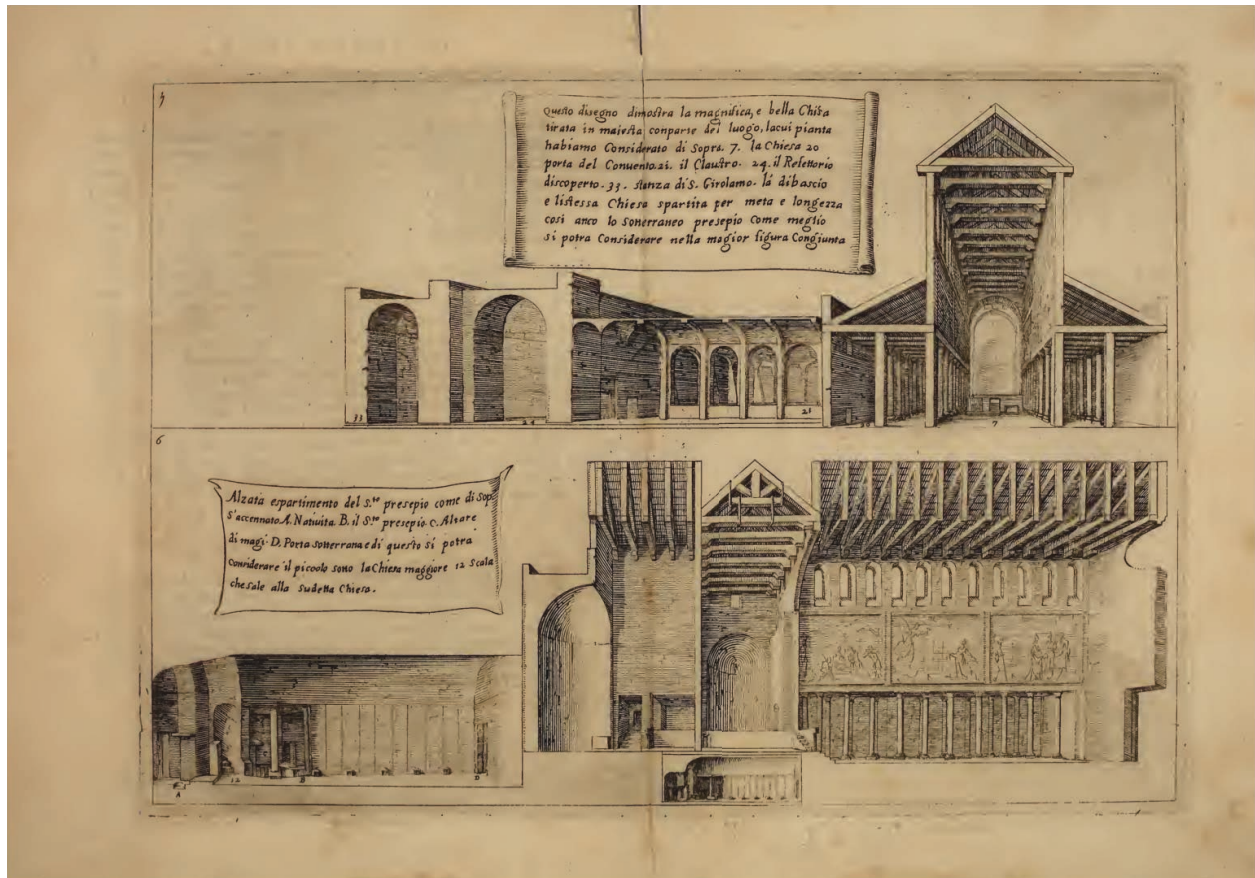 4
Questo disegno dimostra la magnifica, e bella Chiesa
tirata in maiesta conparte del luogo, lacui pianta
habiamo Considerato di Sopra. 7. la Chiesa 20
porta del Conuento. 21. il Claustro. 24. il Refettorio
discoperto. 33. stanza di S. Girolamo. la dibascio
e listessa Chiesa spartita per meta e longezza
cosi anco lo sonerraneo presepio Come meglio
si potra Considerare nella magior figura Congiunta
33
24
21
7
6
Alzata espartimento del S.to presepio come di Sop.
S'accennato A. Natiuita. B. il S.to presepio. C. Altare
di magi. D. Porta sotterrana e di questo si potra
Considerare il picoolo sono la Chiesa maggiore 12 Scala
che sale alla Sudetta Chiesa.
A
12
B
D